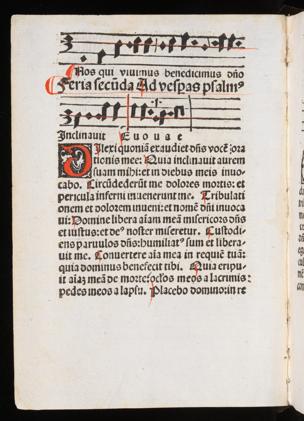 Nos qui viuimus benedicimus dño
Feria secũda Ad vesp̃as psalmꝰ
Inclinauit E u o u a e
Dilexi quoniã exaudiet dñs vocẽ ora
tionis mee: Quia inclinauit aurem
suam mihi: et in diebus meis inuo
cabo. Circũdederũt me dolores mortis: et
pericula inferni inuenerunt me. Tribulati
onem et dolorem inueni: et nomẽ dñi inuoca
ui: Domine libera aĩam meã misericors dñs
et iustus: et deꝰ noster miseretur. Custodi
ens paruulos dñs: humiliatꝰ sum et libera-
uit me. Conuertere aĩa mea in requiẽ tuã:
quia dominus benefecit tibi. Quia eripu-
it aĩaz meã de morte: oc̃los meos a lacrimis:
pedes meos a lapsu. Placebo domino: in re